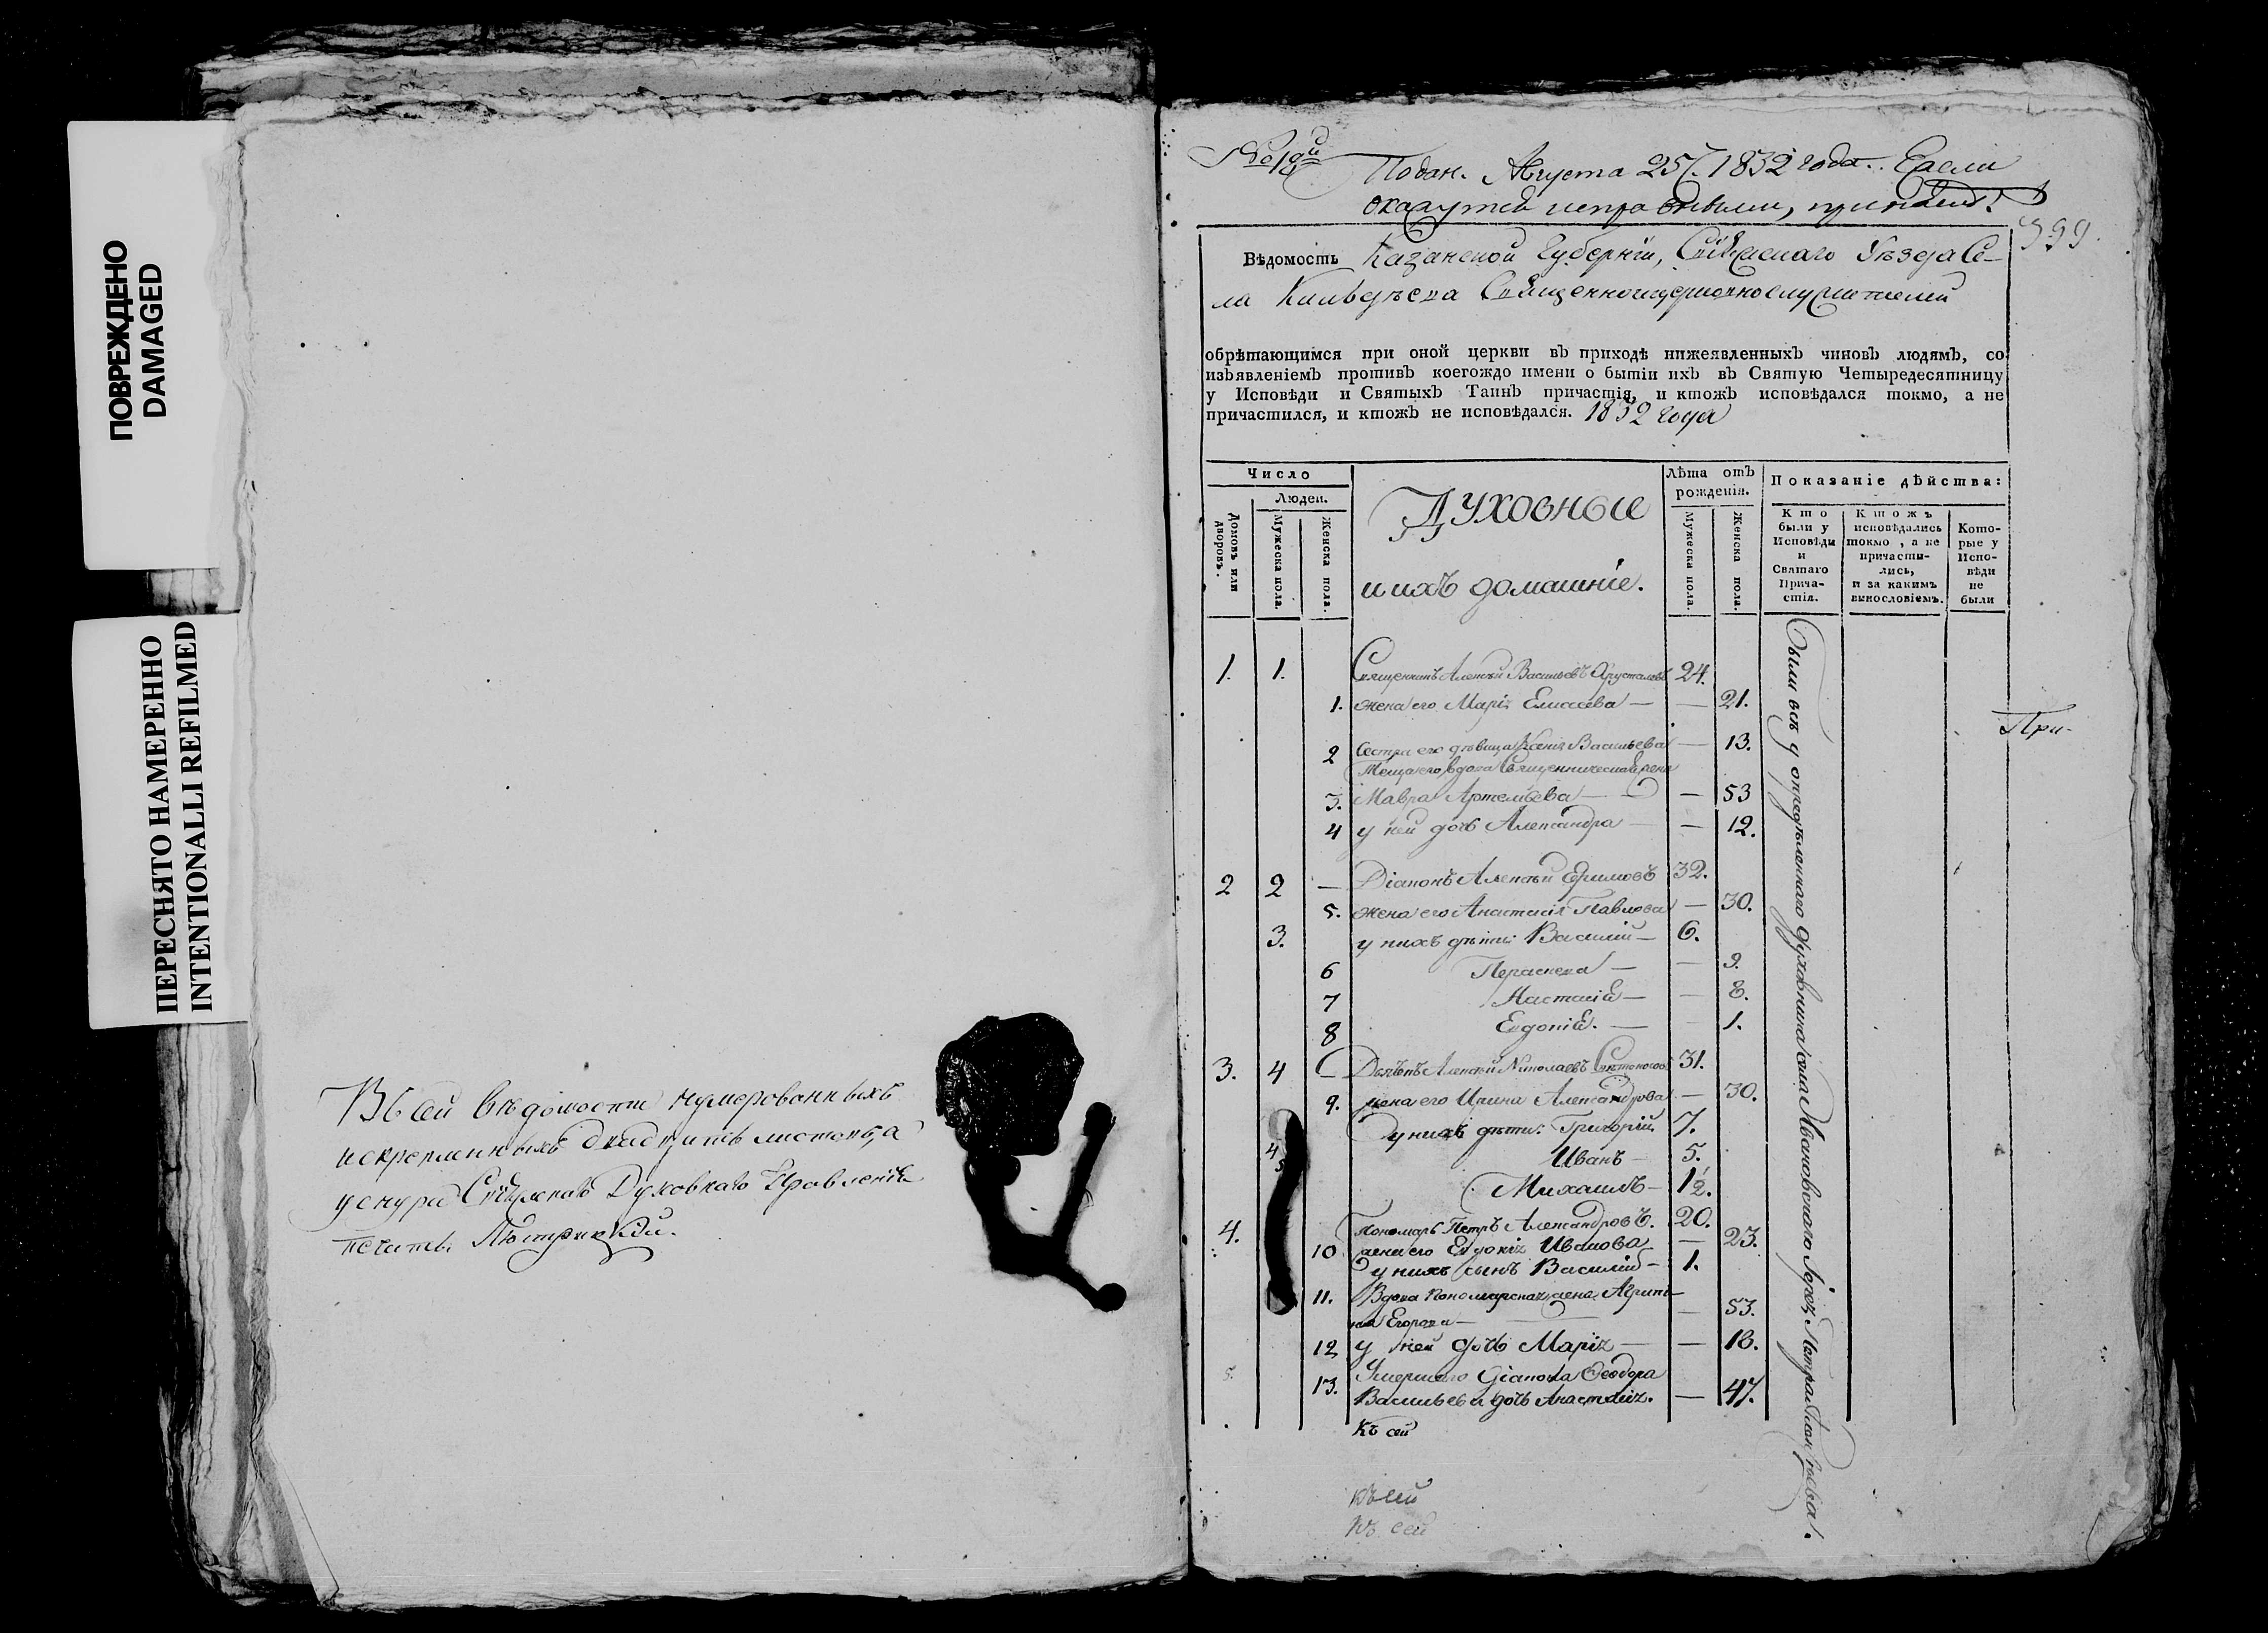 ПОВРЕЖДЕНО
DAMAGED
ПЕРЕСНЯТО НАМЕРЕННО
INTENTIONALLI REFILMED
Въ сей вѣдомости нумерованныхъ
и скрепленныхъ двадцать листовъ, а
у снура Свіяжскаго Духовнаго Правленія
печать.
Подан. Августа 25. 1832 года. Ежели
окажутся исправными, принять.
399
Вѣдомость Казанской Губерніи, Свіяжскаго Уѣзда Се-
ла Священноицерковнослужителей
обрѣтающимся при оной церкви въ приходѣ нижеявленныхъ чиновъ людямъ, со
изъявленіемъ противъ коегождо имени о бытіи ихъ въ Святую Четыредесятницу
у Исповѣди и Святыхъ Таинъ причастія, и ктожъ исповѣдался токмо, а не
причастился, и ктожъ не исповѣдался. 1832 года
Число
Людей.
Домовъ или дворовъ.
Мужеска пола.
Женска пола.
Духовные
и ихъ домашніе.
Лѣта отъ рожденія.
Мужеска пола.
Женска пола.
Показаніе дѣйства:
Кто были у Исповѣди и Святаго Прича-стія.
Ктожъ исповѣдались токмо, а не причасти-лись, и за какимъ винословіемъ.
Кото-рые у Испо-вѣди не были
1. 1. Священникъ Алексѣй Васильевъ Хрусталевъ 24.
1. жена его Марія Елисеева — — 21.
2 Сестра его дѣвица Ксенія Васильева — 13.
Теща его, вдова Священническая жена
3. Мавра Артемьева — — 53
4 у ней дочь Александра — — 12.
2 2 — Діаконъ Алексѣй Ефимовъ 32.
5. жена его Анастасія Павлова — 30.
3. у нихъ дѣти: Василій — 6.
6 Параскева — — 9.
7 Настасія — — 8.
8 Евдокія. — — 1.
3. 4 — Дьячекъ Алексѣй Николаевъ 31.
9. жена его Ирина Александрова — 30.
у нихъ дѣти: Григорій 7.
Иванъ — 5.
Михаилъ — 1/2.
4. Пономарь Петръ Александровъ. 20.
10 жена его Евдокія Иванова — 23.
у нихъ сынъ Василій — 1.
11. Вдова пономарская жена Агрипи-
на Егорова — — 53.
12 у ней дочь Марія — — 18.
5. Умершаго Діакона Ѳеодора
13. Васильева дочь Анастасія. — 47.
Къ сей
Къ сей
Къ сей
Были всѣ у опредѣленнаго духовника села Ивановскаго Іерея Петра
При-